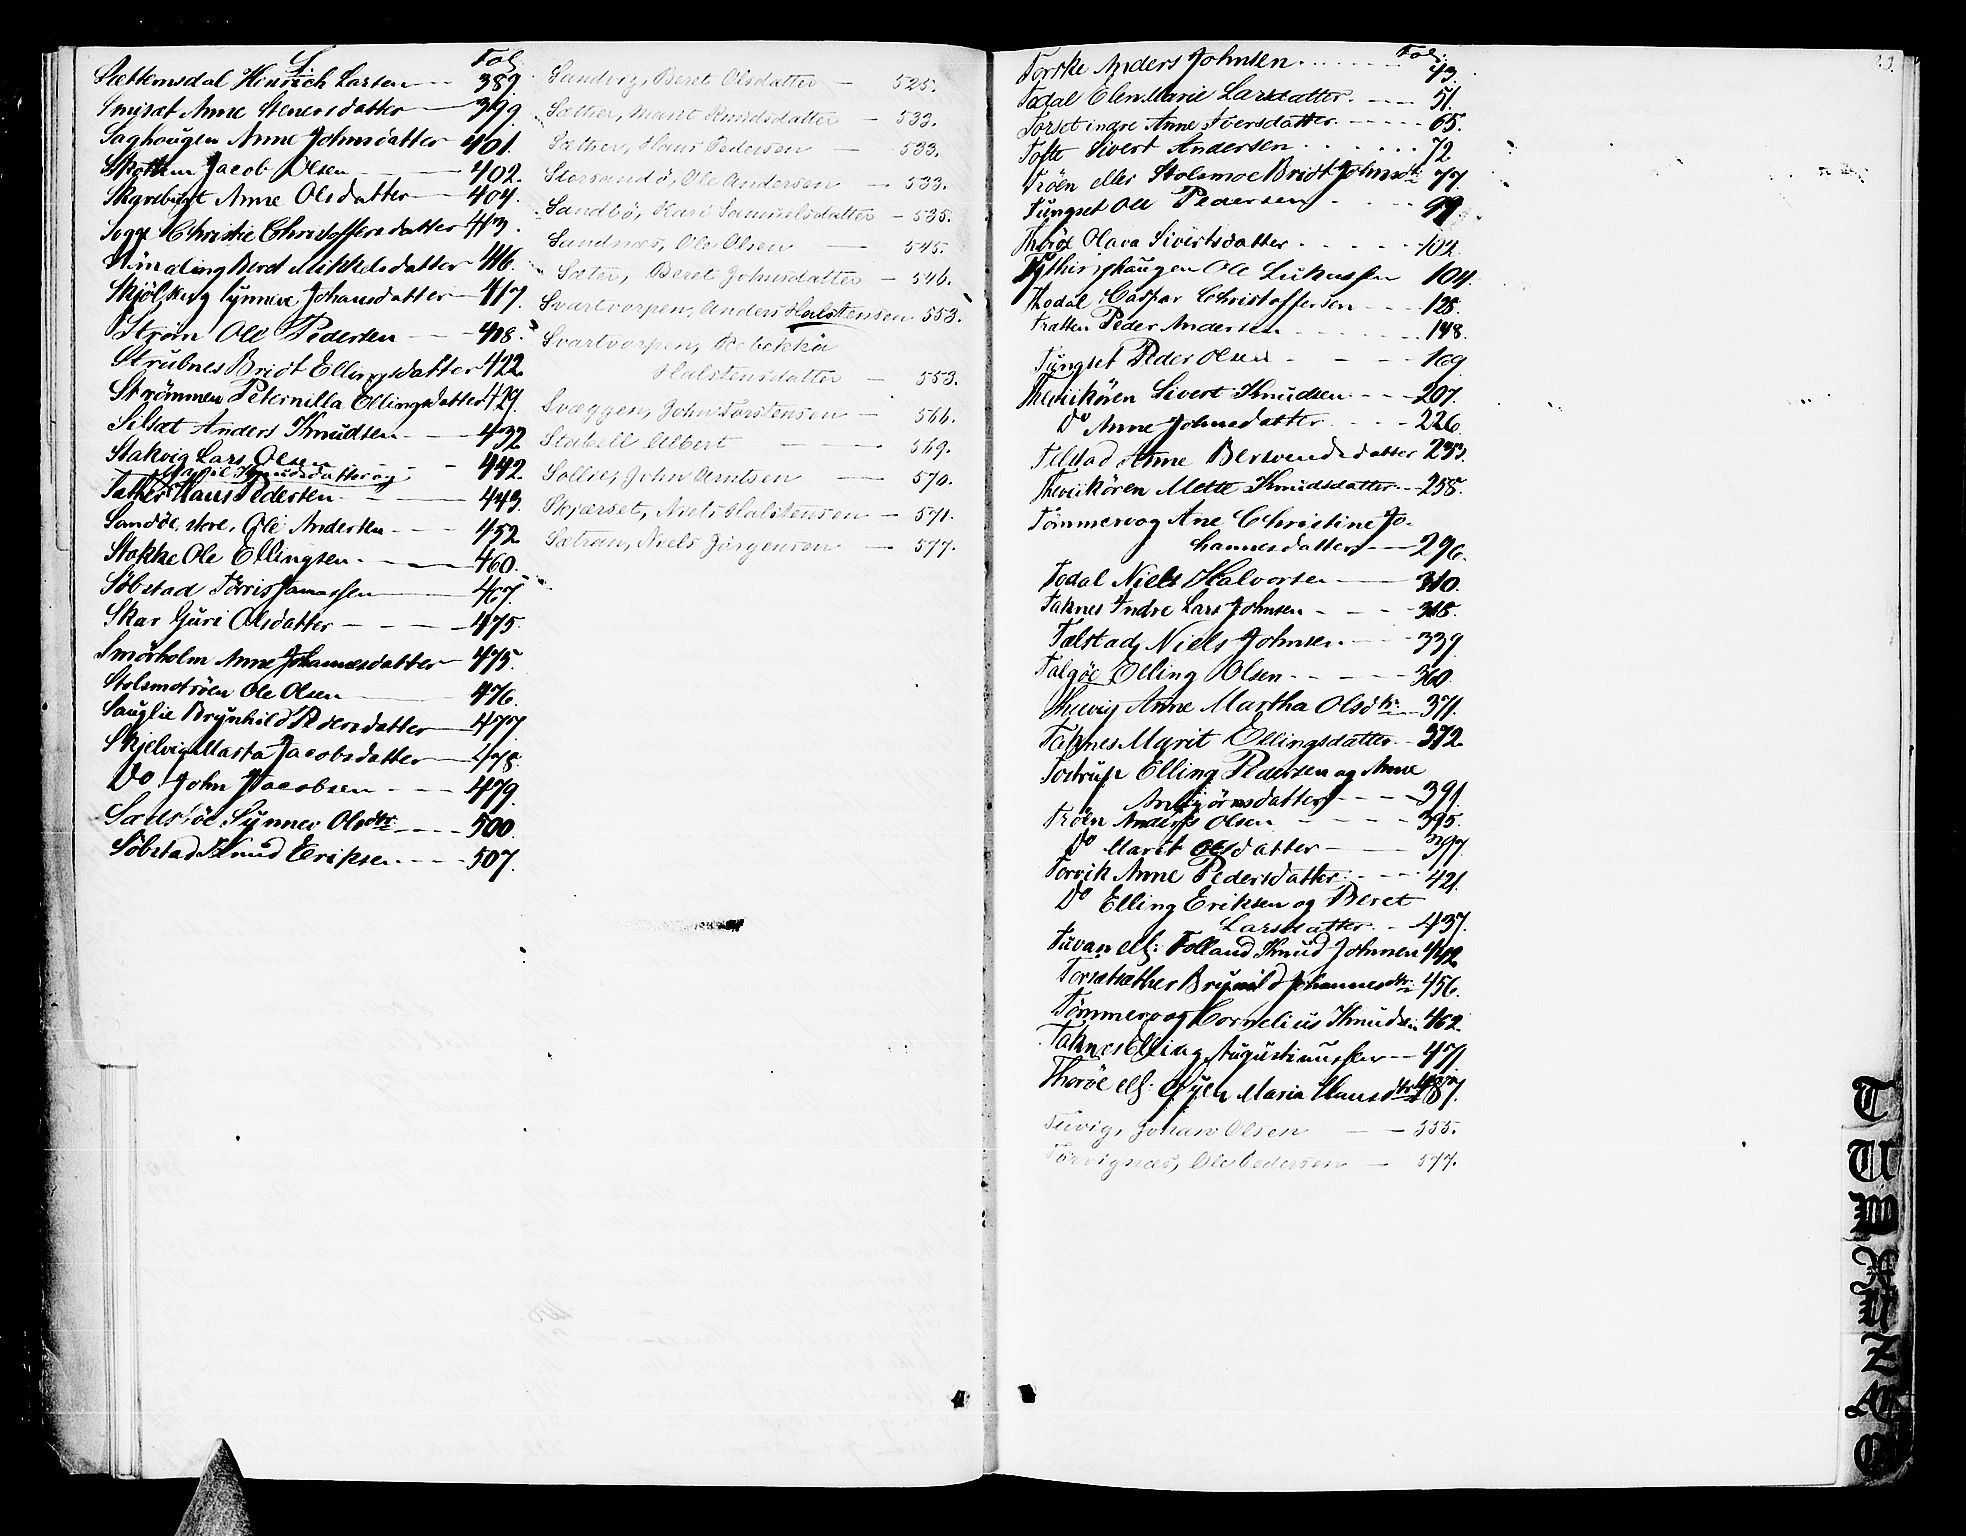 S. Fol.
Sættemsdal Hinrich Larsen 389.
Smiset Anne Stenersdatter 399
Saghaugen Anne Johnsdatter 401.
Skottem Jacob Olsen 402.
Skarebugt Anne Olsdatter 404.
Sogge Christie Christoffersdatter 413.
Beret Mikkelsdatter 416.
Skjölberg Synneve Johansdatter 417.
Ström Ole Pedersen 418.
Strubnes Bridt Ellingsdatter 422
Strömmen Peternilla Ellingsdatter 429.
Silsæt Anders Knudsen 432
Stakvig Lars Olsen 442.
Marit Knudsdatter og
Sæther Hans Pedersen 443.
Sandöe store, Ole Andersen 452.
Stokke Ole Ellingsen 460.
Söbstad Törris Jonassen 467.
Skar Guri Olsdatter 475.
Smörholm Anne Johannesdatter 475.
Stolsmotröen Ole Olsen 476.
Sauglie Brynhild Pedersdatter 477.
Skjelvig Marta Jacobsdatter 478.
Do John Jacobsen 479.
Synnev Olsdtr 500.
Söbstad Knud Eriksen 507.
Sandvig, Beret Olsdatter 525.
Sæther, Marit Knudsdatter 533.
Sæther, Hans Pedersen 533.
Storsandö, Ole Andersen 533.
Sandbö, Kari Samuelsdatter 535.
Sandnæs, Ole Olsen 545.
Sæter, Beret Johnsdatter 546.
Svartvorpen, Anders Halstensen 553.
Svartvorpen, Rebekka
Halstensdatter 553.
Svæggen, John Torstensen 566.
Stabell Albert 569.
Sollie, John Arntsen 570.
Skjærset, Niels Halstensen 571.
Sætran, Niels Jörgensen 577.
Fol.
Torske Anders Johnsen 43.
Todal Elen Marie Larsdatter 51.
Torset indre Anne Iversdatter 65.
Tofte Sivert Andersen 72
Tröen eller Stolsmoe Bridt Johnsdtr 77.
Tungset Ole Pedersen 99.
Thoröe Olava Sivertsdatter 102.
Ole Lukassen 104.
Thodal Caspar Christoffersen 128.
Tratten Peder Andersen 148.
Tungset Peder Olsen 169
Thevikören Sivert Knudsen 207.
Do Anne Johnsdatter 226.
Telstad Anne Bersvendsdatter 233.
Thevikören Mette Knudsdatter 258.
Tömmervog Ane Christine Jo-
hannesdatter 296.
Todal Niels Halvorsen 310.
Taknes Indre Lars Johnsen 318.
Talstad Niels Johnsen 339.
Talgöe Elling Olsen 360.
Thevig Anne Martha Olsdtr 371.
Taknes Marit Ellingsdatter 372.
Tostrup Elling Pedersen og Anne
Anbjörnsdatter 391.
Tröen Anders Olsen 395.
Do Marit Olsdatter 397.
Torvik Anne Pedersdatter 421.
Do Elling Eriksen og Beret
Larsdatter 437.
Tuvan ell: Folland Knud Johnsen 442
Torsetsæther Brynild Johannesdtr 456.
Tömmervog Cornelius Knudsen 462.
Taknes Elling Augustinussen 471.
Thoröe ell: Maria Hansdtr 487.
Tevig, Johan Olsen 555.
Torvignæs, Ole Pedersen 577.
T
U
W
X
Y
Z
Æ
Ö